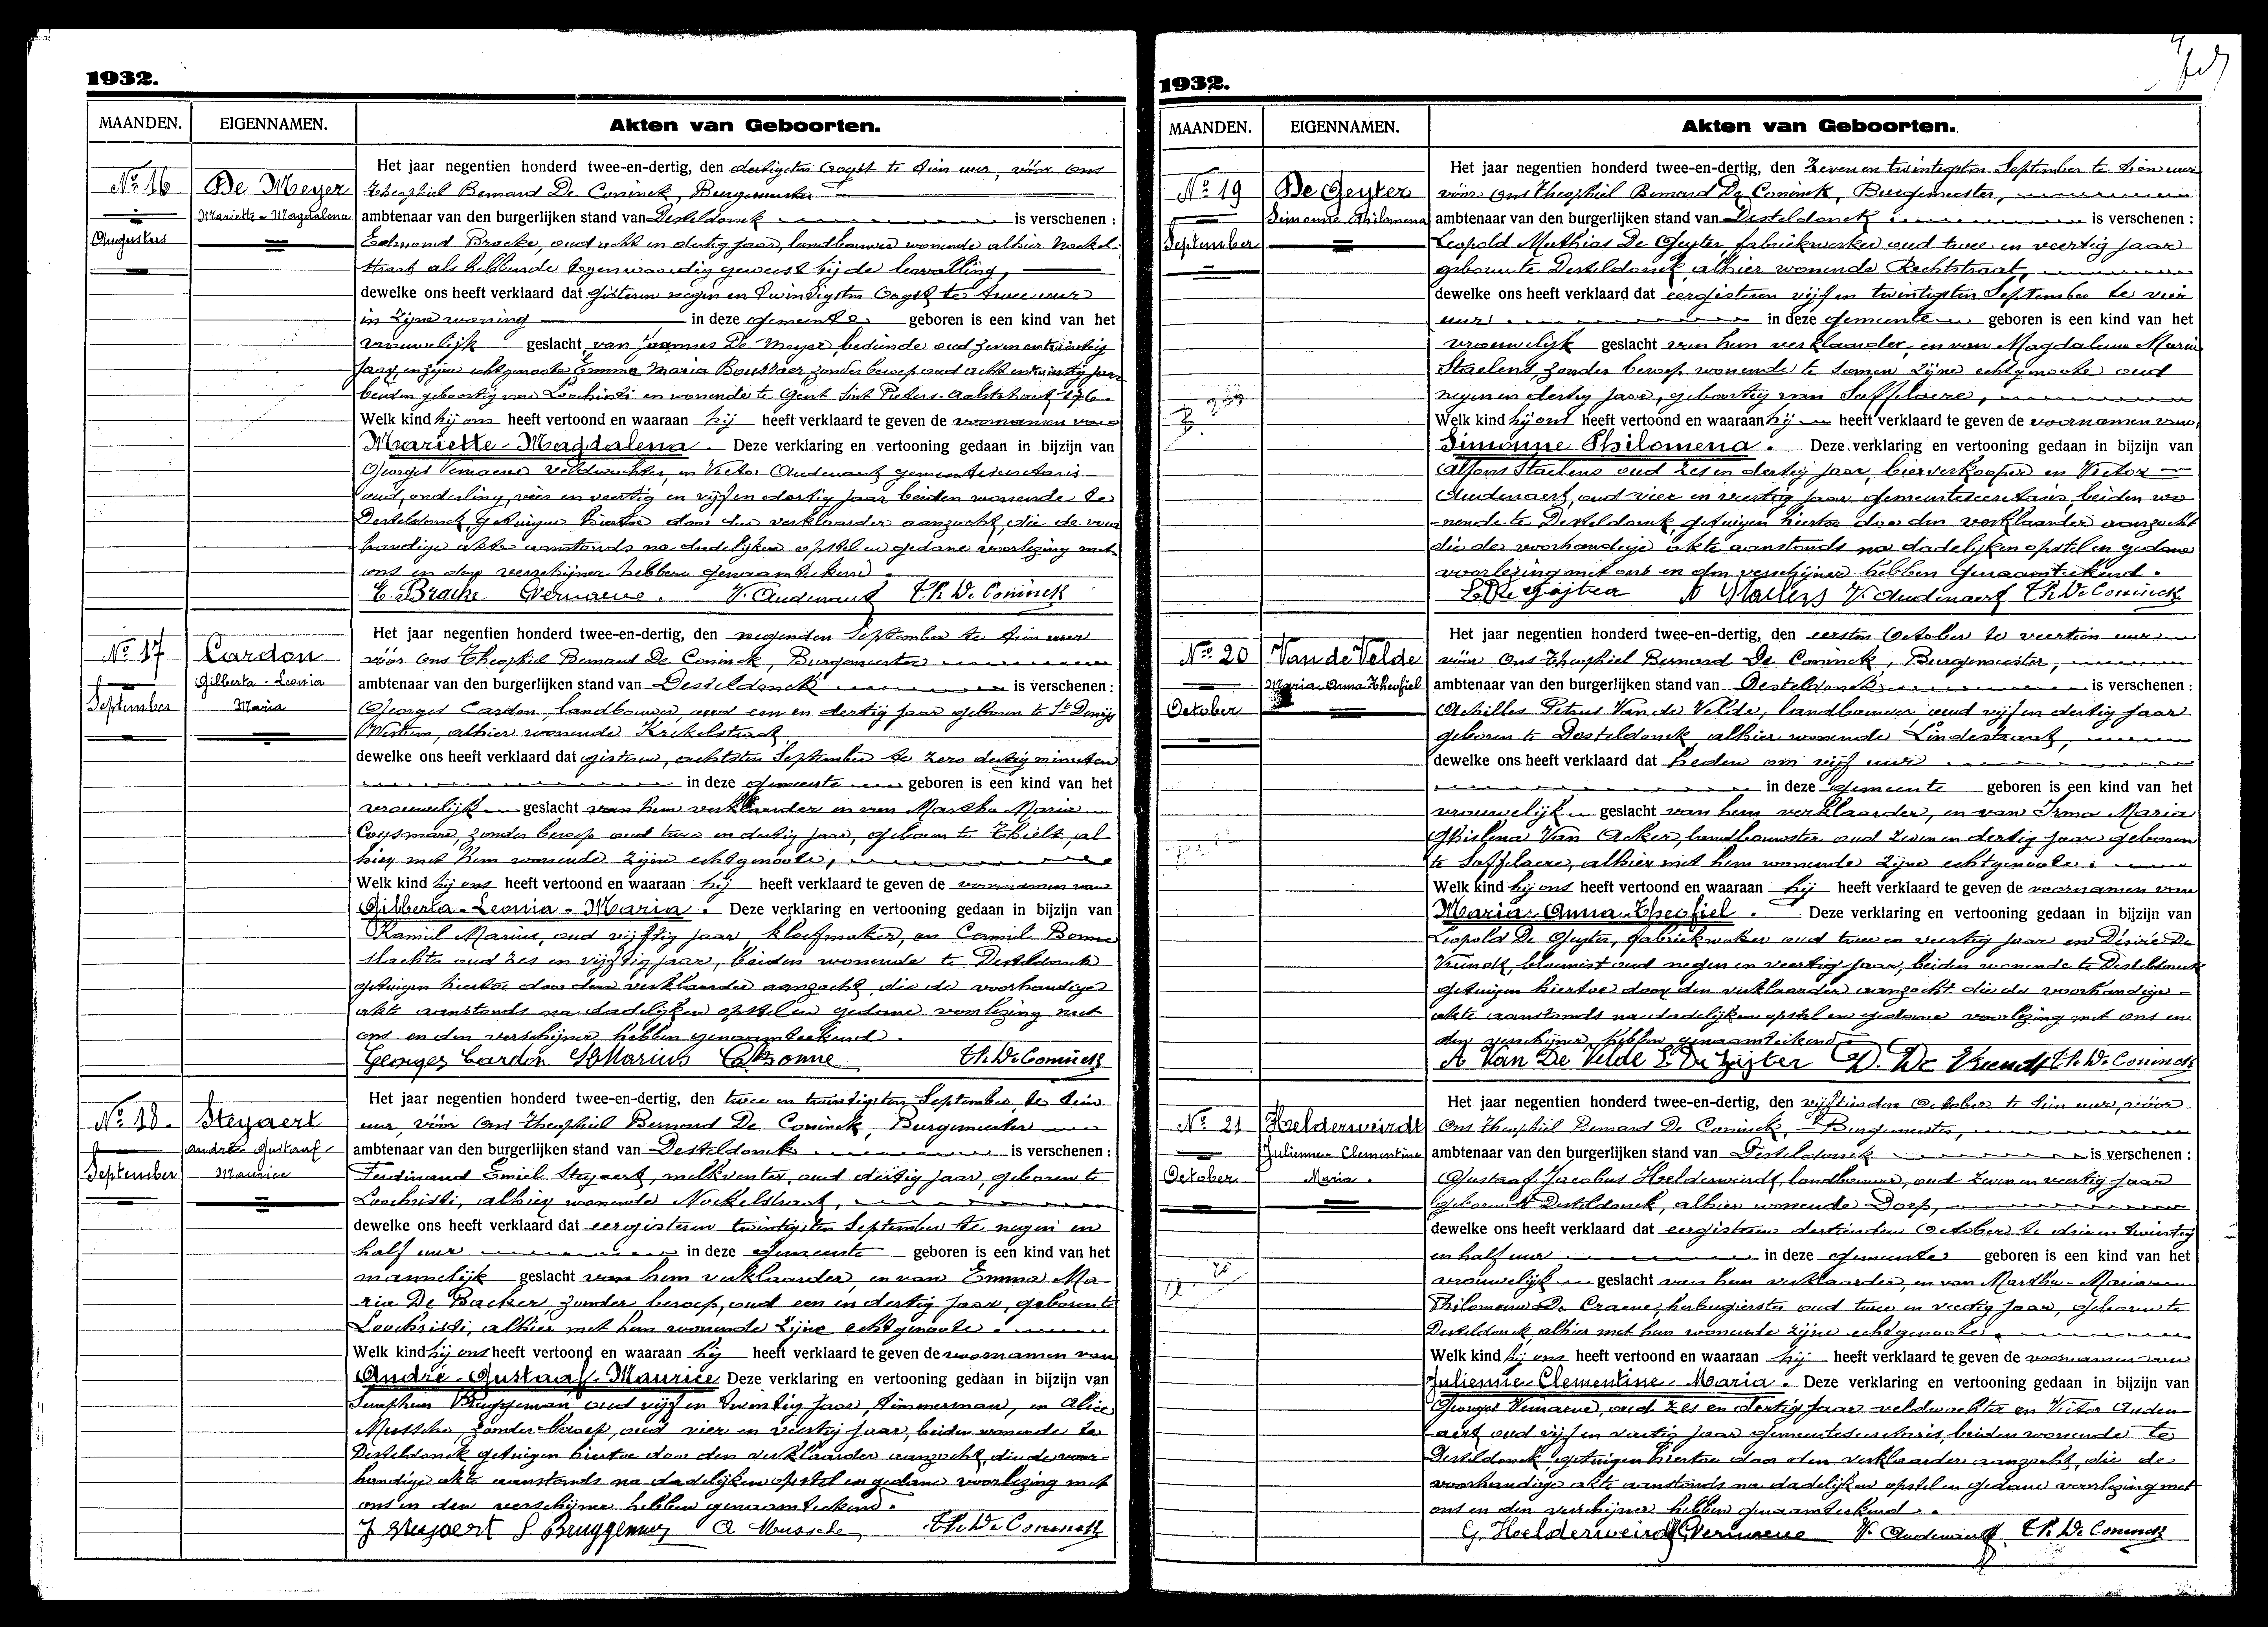 1932.
MAANDEN. EIGENNAMEN. Akten van Geboorten.
No 16
Augustus
De Meyer
Mariette - Magdalena
Het jaar negentien honderd twee-en-dertig, den dertigsten Oogst te tien uur, vóór ons
Theophiel Bernard De Coninck, Burgemeester
ambtenaar van den burgerlijken stand van Desteldonck is verschenen :
Edmond Bracke, oud acht en dertig jaar, landbouwer wonende alhier Nockel-
straat als hebbende tegenwoordig geweest bij de bevalling,
dewelke ons heeft verklaard dat gisteren negen en twintigsten Oogst te twee uur
in zijne woning in deze gemeente geboren is een kind van het
vrouwelijk geslacht van Joannes De Meyer, bediende oud zeven en twintig
jaar, en zijne echtgenoote Emma Maria Boussaer, zonder beroep oud acht en twintig jaar
beiden geboortig van Loochristi en wonende te Gent Sint Pieters-Aalststraat 176.
Welk kind hij ons heeft vertoond en waaraan hij heeft verklaard te geven de voornamen van
Mariette - Magdalena. Deze verklaring en vertooning gedaan in bijzijn van
Georges Vernaeve veldwachter, en Victor Audenaert gemeentesecretaris
oud, onderling, zes en veertig en vijf en dertig jaar beiden wonende te
Desteldonck, getuigen hiertoe door den verklaarder aanzocht, die de voor
handige akte aanstonds na dadelijken opstel en gedane voorlezing met
ons en den verschijner hebben genaamteekend.
E. Bracke Vernaeve. V. Audenaert Th. De Coninck
No 17
September
Cardon
Gilberta - Leonia
Maria
Het jaar negentien honderd twee-en-dertig, den negenden September te tien uur
vóór ons Theophiel Bernard De Coninck, Burgemeester
ambtenaar van den burgerlijken stand van Desteldonck is verschenen :
Georges Cardon, landbouwer, oud een en dertig jaar geboren te St Denijs
Westrem, alhier wonende Krekelstraat
dewelke ons heeft verklaard dat gisteren, achtsten September te zero dertig minuten
in deze gemeente geboren is een kind van het
vrouwelijk geslacht van hem verklaarder en van Martha Maria
Coysman, zonder beroep oud twee en dertig jaar, geboren te Thielt, al-
hier met hem wonende zijne echtgenoote,
Welk kind hij ons heeft vertoond en waaraan hij heeft verklaard te geven de voornamen van
Gilberta - Leonia - Maria. Deze verklaring en vertooning gedaan in bijzijn van
Kamiel Marius, oud vijftig jaar, kloefmaker, en Camiel Bonne
slachter oud zes en vijftig jaar, beiden wonende te Desteldonck
getuigen hiertoe door den verklaarder aanzocht, die de voorhandige
akte aanstonds na dadelijken opstel en gedane voorlezing met
ons en den verschijner hebben genaamteekend.
Georges Cardon K Marius C Bonne Th. De Coninck
No 18.
September
Steyaert
André - Gustaaf -
Maurice
Het jaar negentien honderd twee-en-dertig, den twee en twintigsten September, te tien
uur, vóór Ons Theophiel Bernard De Coninck, Burgemeester
ambtenaar van den burgerlijken stand van Desteldonck is verschenen :
Ferdinand Emiel Steyaert, melkventer, oud dertig jaar, geboren te
Loochristi, alhier wonende Nockelstraat,
dewelke ons heeft verklaard dat eergisteren twintigsten September te negen en
half uur in deze gemeente geboren is een kind van het
mannelijk geslacht van hem verklaarder, en van Emma Ma-
ria De Backer, zonder beroep, oud een en dertig jaar, geboren te
Loochristi, alhier met hem wonende zijne echtgenoote.
Welk kind hij ons heeft vertoond en waaraan hij heeft verklaard te geven de voornamen van
André - Gustaaf - Maurice Deze verklaring en vertooning gedaan in bijzijn van
Seraphien Bruggeman oud vijf en twintig jaar, timmerman, en Alice
Mussche, zonder beroep, oud vier en veertig jaar, beiden wonende te
Desteldonck getuigen hiertoe door den verklaarder aanzocht, die de voor-
handige akte aanstonds na dadelijken opstel en gedane voorlezing met
ons en den verschijner hebben genaamteekend.
F Steyaert S Bruggeman A Mussche Th. De Coninck
1932.
MAANDEN. EIGENNAMEN. Akten van Geboorten.
No 19
September
De Geyter
Simonne Philomena
Het jaar negentien honderd twee-en-dertig, den zeven en twintigsten September te tien uur
vóór Ons Theophiel Bernard De Coninck, Burgemeester,
ambtenaar van den burgerlijken stand van Desteldonck is verschenen :
Leopold Mathias De Geyter, fabriekwerker oud twee en veertig jaar
geboren te Desteldonck, alhier wonende Rechtstraat,
dewelke ons heeft verklaard dat eergisteren vijf en twintigsten September te vier
uur in deze gemeente geboren is een kind van het
vrouwelijk geslacht van hem verklaarder, en van Magdalena Maria
Staelens, zonder beroep wonende te samen zijne echtgenoote oud
negen en dertig jaar, geboortig van Saffelaere,
Welk kind hij ons heeft vertoond en waaraan hij heeft verklaard te geven de voornamen van,
Simonne Philomena. Deze verklaring en vertooning gedaan in bijzijn van
Alfons Staelens oud zes en dertig jaar, bierverkooper en Victor
Audenaert, oud vier en veertig jaar gemeentesecretaris, beiden wo
-nende te Desteldonck, getuigen hiertoe door den verklaarder aanzocht
die de voorhandige akte aanstonds na dadelijken opstel en gedane
voorlezing met ons en den verschijner hebben genaamteekend.
L De Gijter A Staelens V. Audenaert Th. De Coninck
No 20
October
Van de Velde
Maria Anna Theofiel
Het jaar negentien honderd twee-en-dertig, den eersten October te veertien uur
vóór Ons Theophiel Bernard De Coninck, Burgemeester,
ambtenaar van den burgerlijken stand van Desteldonck is verschenen :
Achilles Petrus Van de Velde, landbouwer, oud vijf en dertig jaar
geboren te Desteldonck, alhier wonende Lindestraat,
dewelke ons heeft verklaard dat heden om vijf uur
in deze gemeente geboren is een kind van het
vrouwelijk geslacht van hem verklaarder, en van Irma Maria
Ghislena Van Acker, landbouwster oud zeven en dertig jaar geboren
te Saffelaere, alhier met hem wonende zijne echtgenoote.
Welk kind hij ons heeft vertoond en waaraan hij heeft verklaard te geven de voornamen van
Maria - Anna - Theofiel. Deze verklaring en vertooning gedaan in bijzijn van
Leopold De Geyter, fabriekwerker oud twee en veertig jaar en Désiré De
Vriendt, bloemist oud negen en veertig jaar, beiden wonende te Desteldonck
getuigen hiertoe door den verklaarder aanzocht die de voorhandige
akte aanstonds na dadelijken opstel en gedane voorlezing met ons en
den verschijner hebben genaamteekend
A Van De Velde L De Gijter D. De Vriendt Th. De Coninck
No 21
October
Helderweirdt
Julienne Clementine
Maria.
Het jaar negentien honderd twee-en-dertig, den vijftienden October te tien uur, vóór
Ons Theophiel Bernard De Coninck, Burgemeester,
ambtenaar van den burgerlijken stand van Desteldonck is verschenen :
Gustaaf Jacobus Helderweirdt, landbouwer, oud zeven en veertig jaar
geboren te Desteldonck, alhier wonende Dorp,
dewelke ons heeft verklaard dat eergisteren dertienden October te drie en twintig
en half uur in deze gemeente geboren is een kind van het
vrouwelijk geslacht van hem verklaarder, en van Martha - Maria
Philomena De Craene, herbergierster oud twee en veertig jaar, geboren te
Desteldonck alhier met hem wonende zijne echtgenoote,
Welk kind hij ons heeft vertoond en waaraan hij heeft verklaard te geven de voornamen van
Julienne - Clementine - Maria. Deze verklaring en vertooning gedaan in bijzijn van
Georges Vernaeve, oud zes en dertig jaar veldwachter en Victor Auden-
aert oud vijf en veertig jaar gemeentesecretaris, beiden wonende te
Desteldonck getuigen hiertoe door den verklaarder aanzocht, die de
voorhandige akte aanstonds na dadelijken opstel en gedane voorlezing met
ons en den verschijner hebben genaamteekend.
G. Helderweirdt Vernaeve V. Audenaert Th. De Coninck